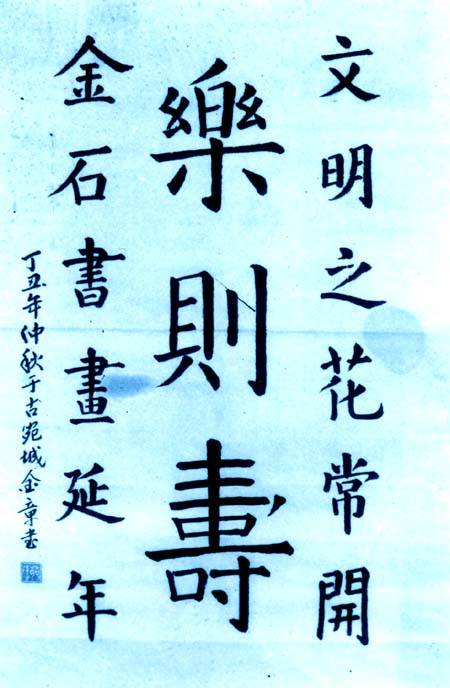 文明之花常開
樂則壽
金石書畫延年
丁丑年仲秋于古宛城金章书